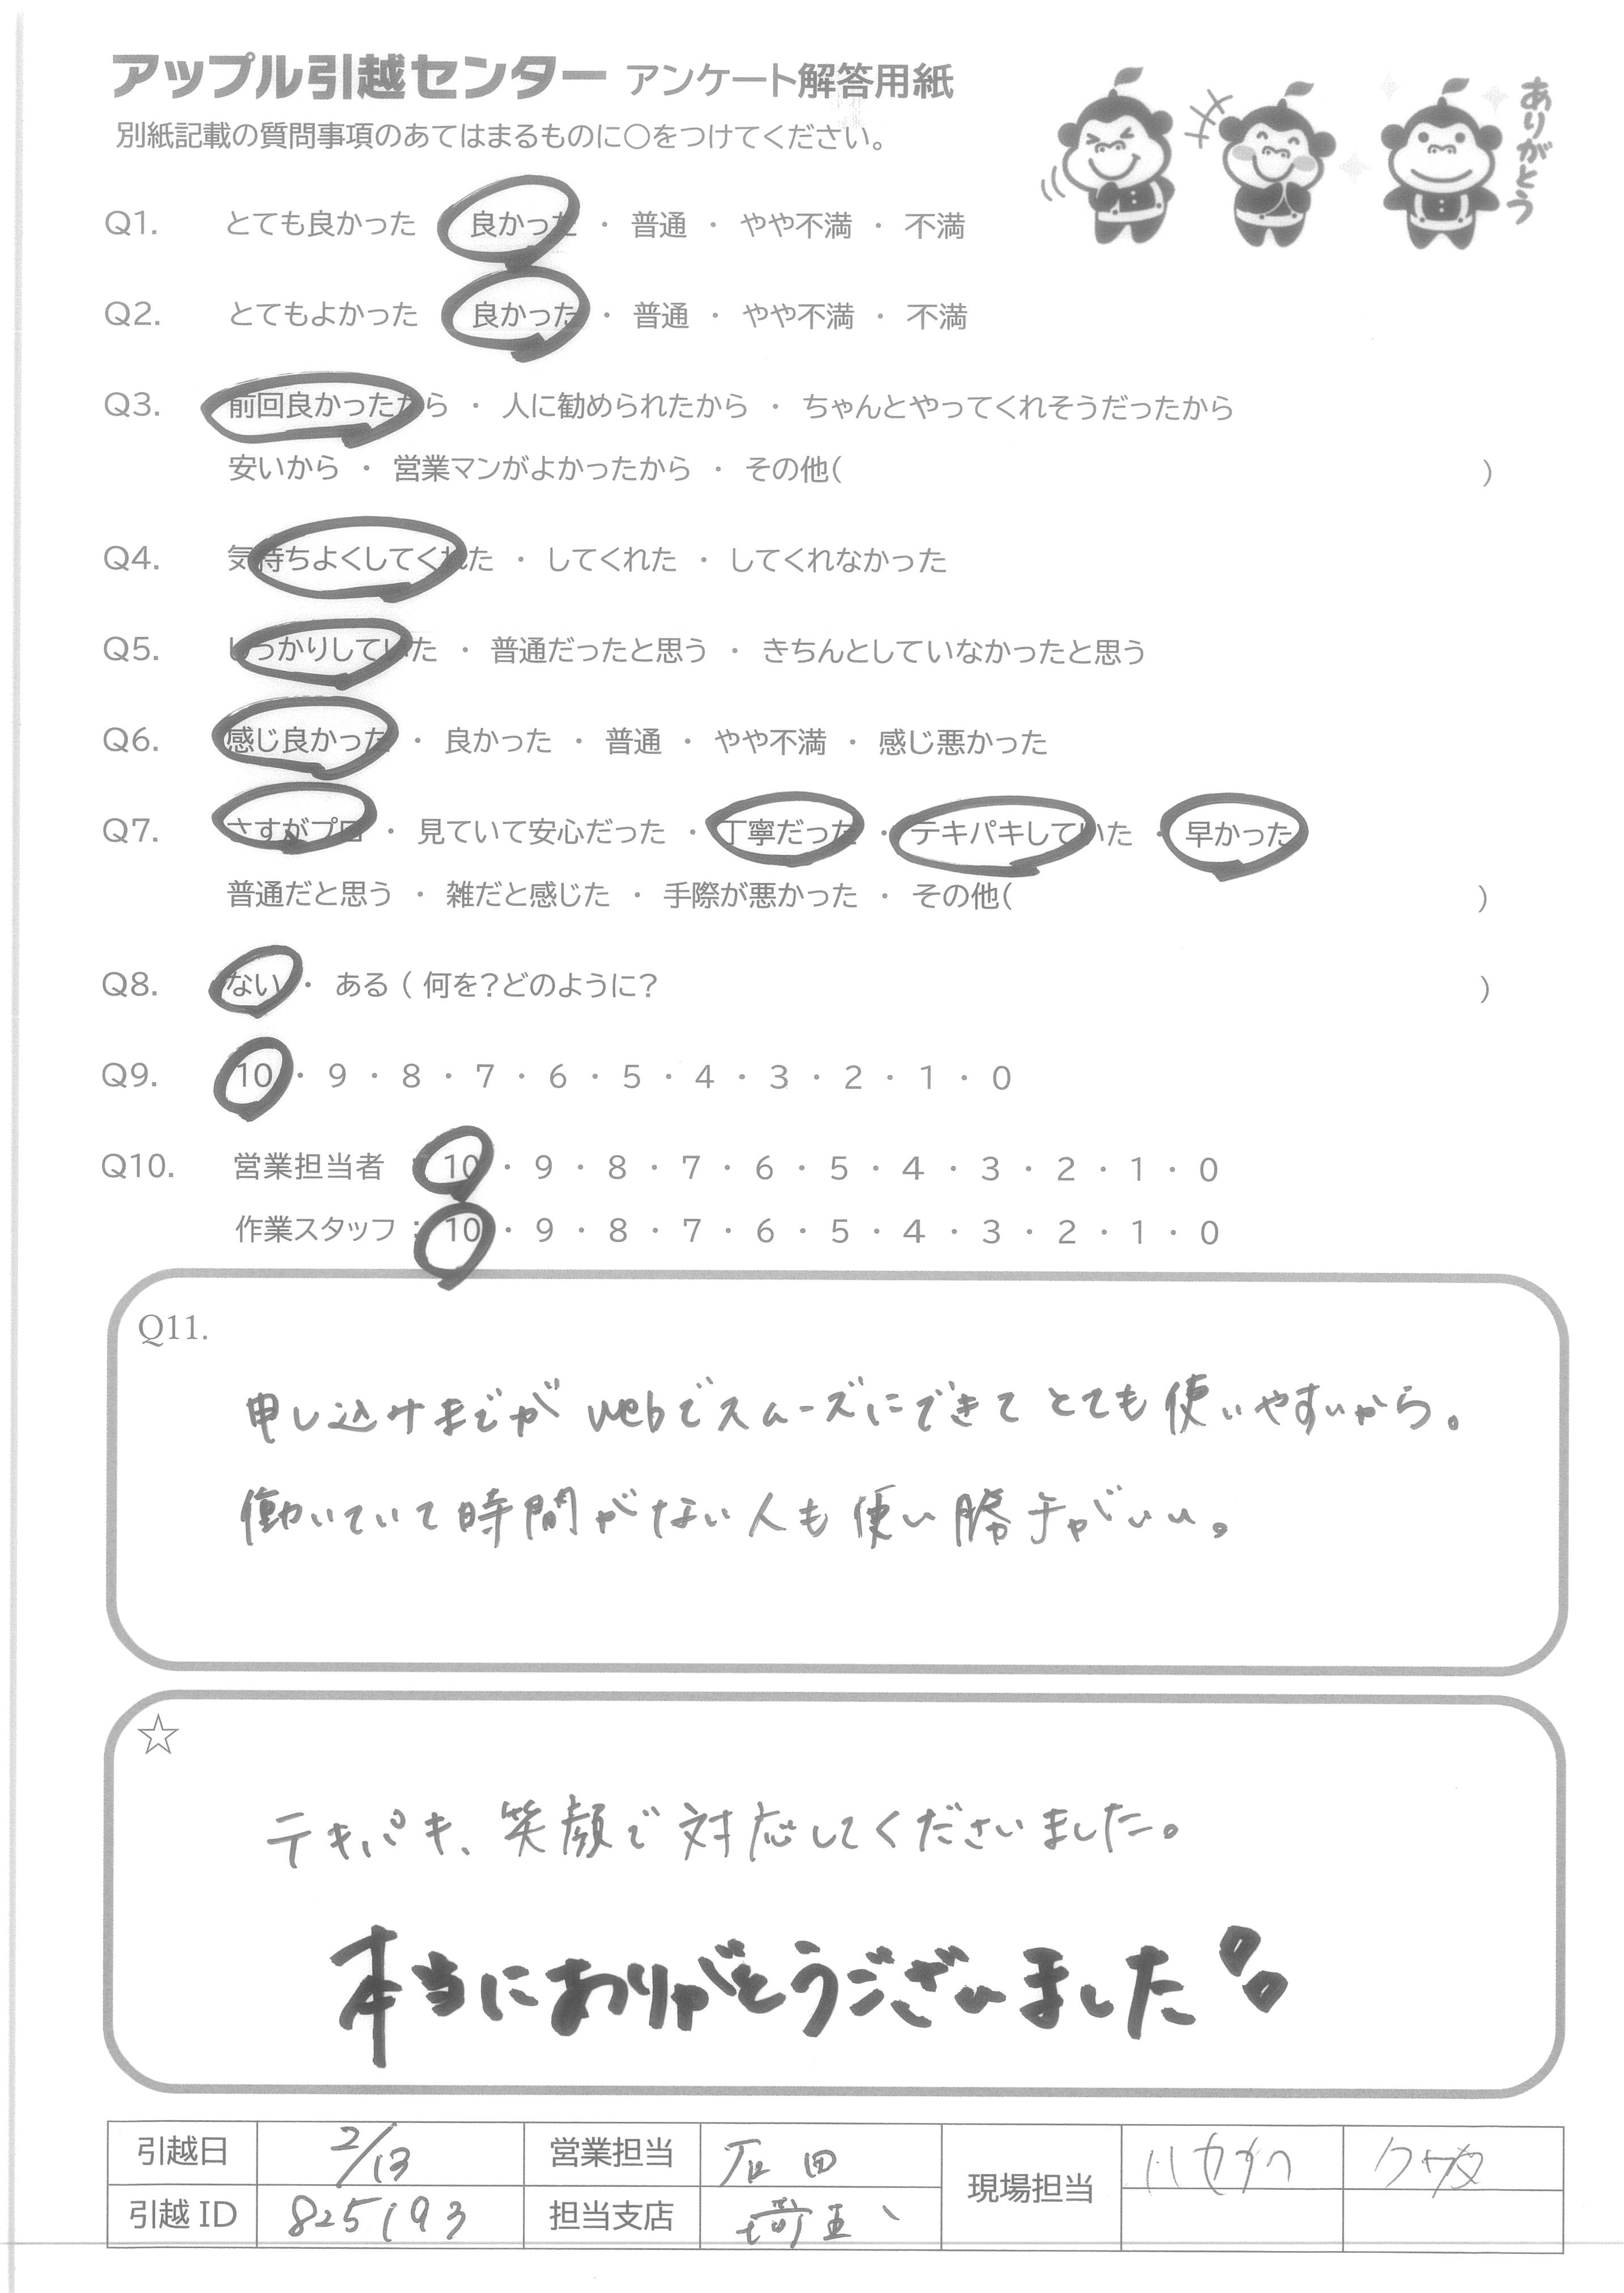 アップル引越センター アンケート解答用紙
別紙記載の質問事項のあてはまるものに○をつけてください。
ありがとう
Q1. とても良かった 良かった ・ 普通 ・ やや不満 ・ 不満
Q2. とてもよかった 良かった ・ 普通 ・ やや不満 ・ 不満
Q3. 前回良かったから ・ 人に勧められたから ・ ちゃんとやってくれそうだったから
安いから ・ 営業マンがよかったから ・ その他( )
Q4. 気持ちよくしてくれた ・ してくれた ・ してくれなかった
Q5. しっかりしていた ・ 普通だったと思う ・ きちんとしていなかったと思う
Q6. 感じ良かった ・ 良かった ・ 普通 ・ やや不満 ・ 感じ悪かった
Q7. さすがプロ ・ 見ていて安心だった ・ 丁寧だった ・ テキパキしていた ・ 早かった
普通だと思う ・ 雑だと感じた ・ 手際が悪かった ・ その他( )
Q8. ない ・ ある ( 何を?どのように? )
Q9. 10 ・ 9 ・ 8 ・ 7 ・ 6 ・ 5 ・ 4 ・ 3 ・ 2 ・ 1 ・ 0
Q10. 営業担当者 : 10 ・ 9 ・ 8 ・ 7 ・ 6 ・ 5 ・ 4 ・ 3 ・ 2 ・ 1 ・ 0
作業スタッフ : 10 ・ 9 ・ 8 ・ 7 ・ 6 ・ 5 ・ 4 ・ 3 ・ 2 ・ 1 ・ 0
Q11.
申し込みまでが webでスムーズにできて とても使いやすいから。
働いていて時間がない人も使い勝手がいい。
☆
テキパキ、笑顔で対応してくださいました。
本当にありがとうございました
引越日 2/13 営業担当 石田 現場担当
引越ID 825193 担当支店 埼玉